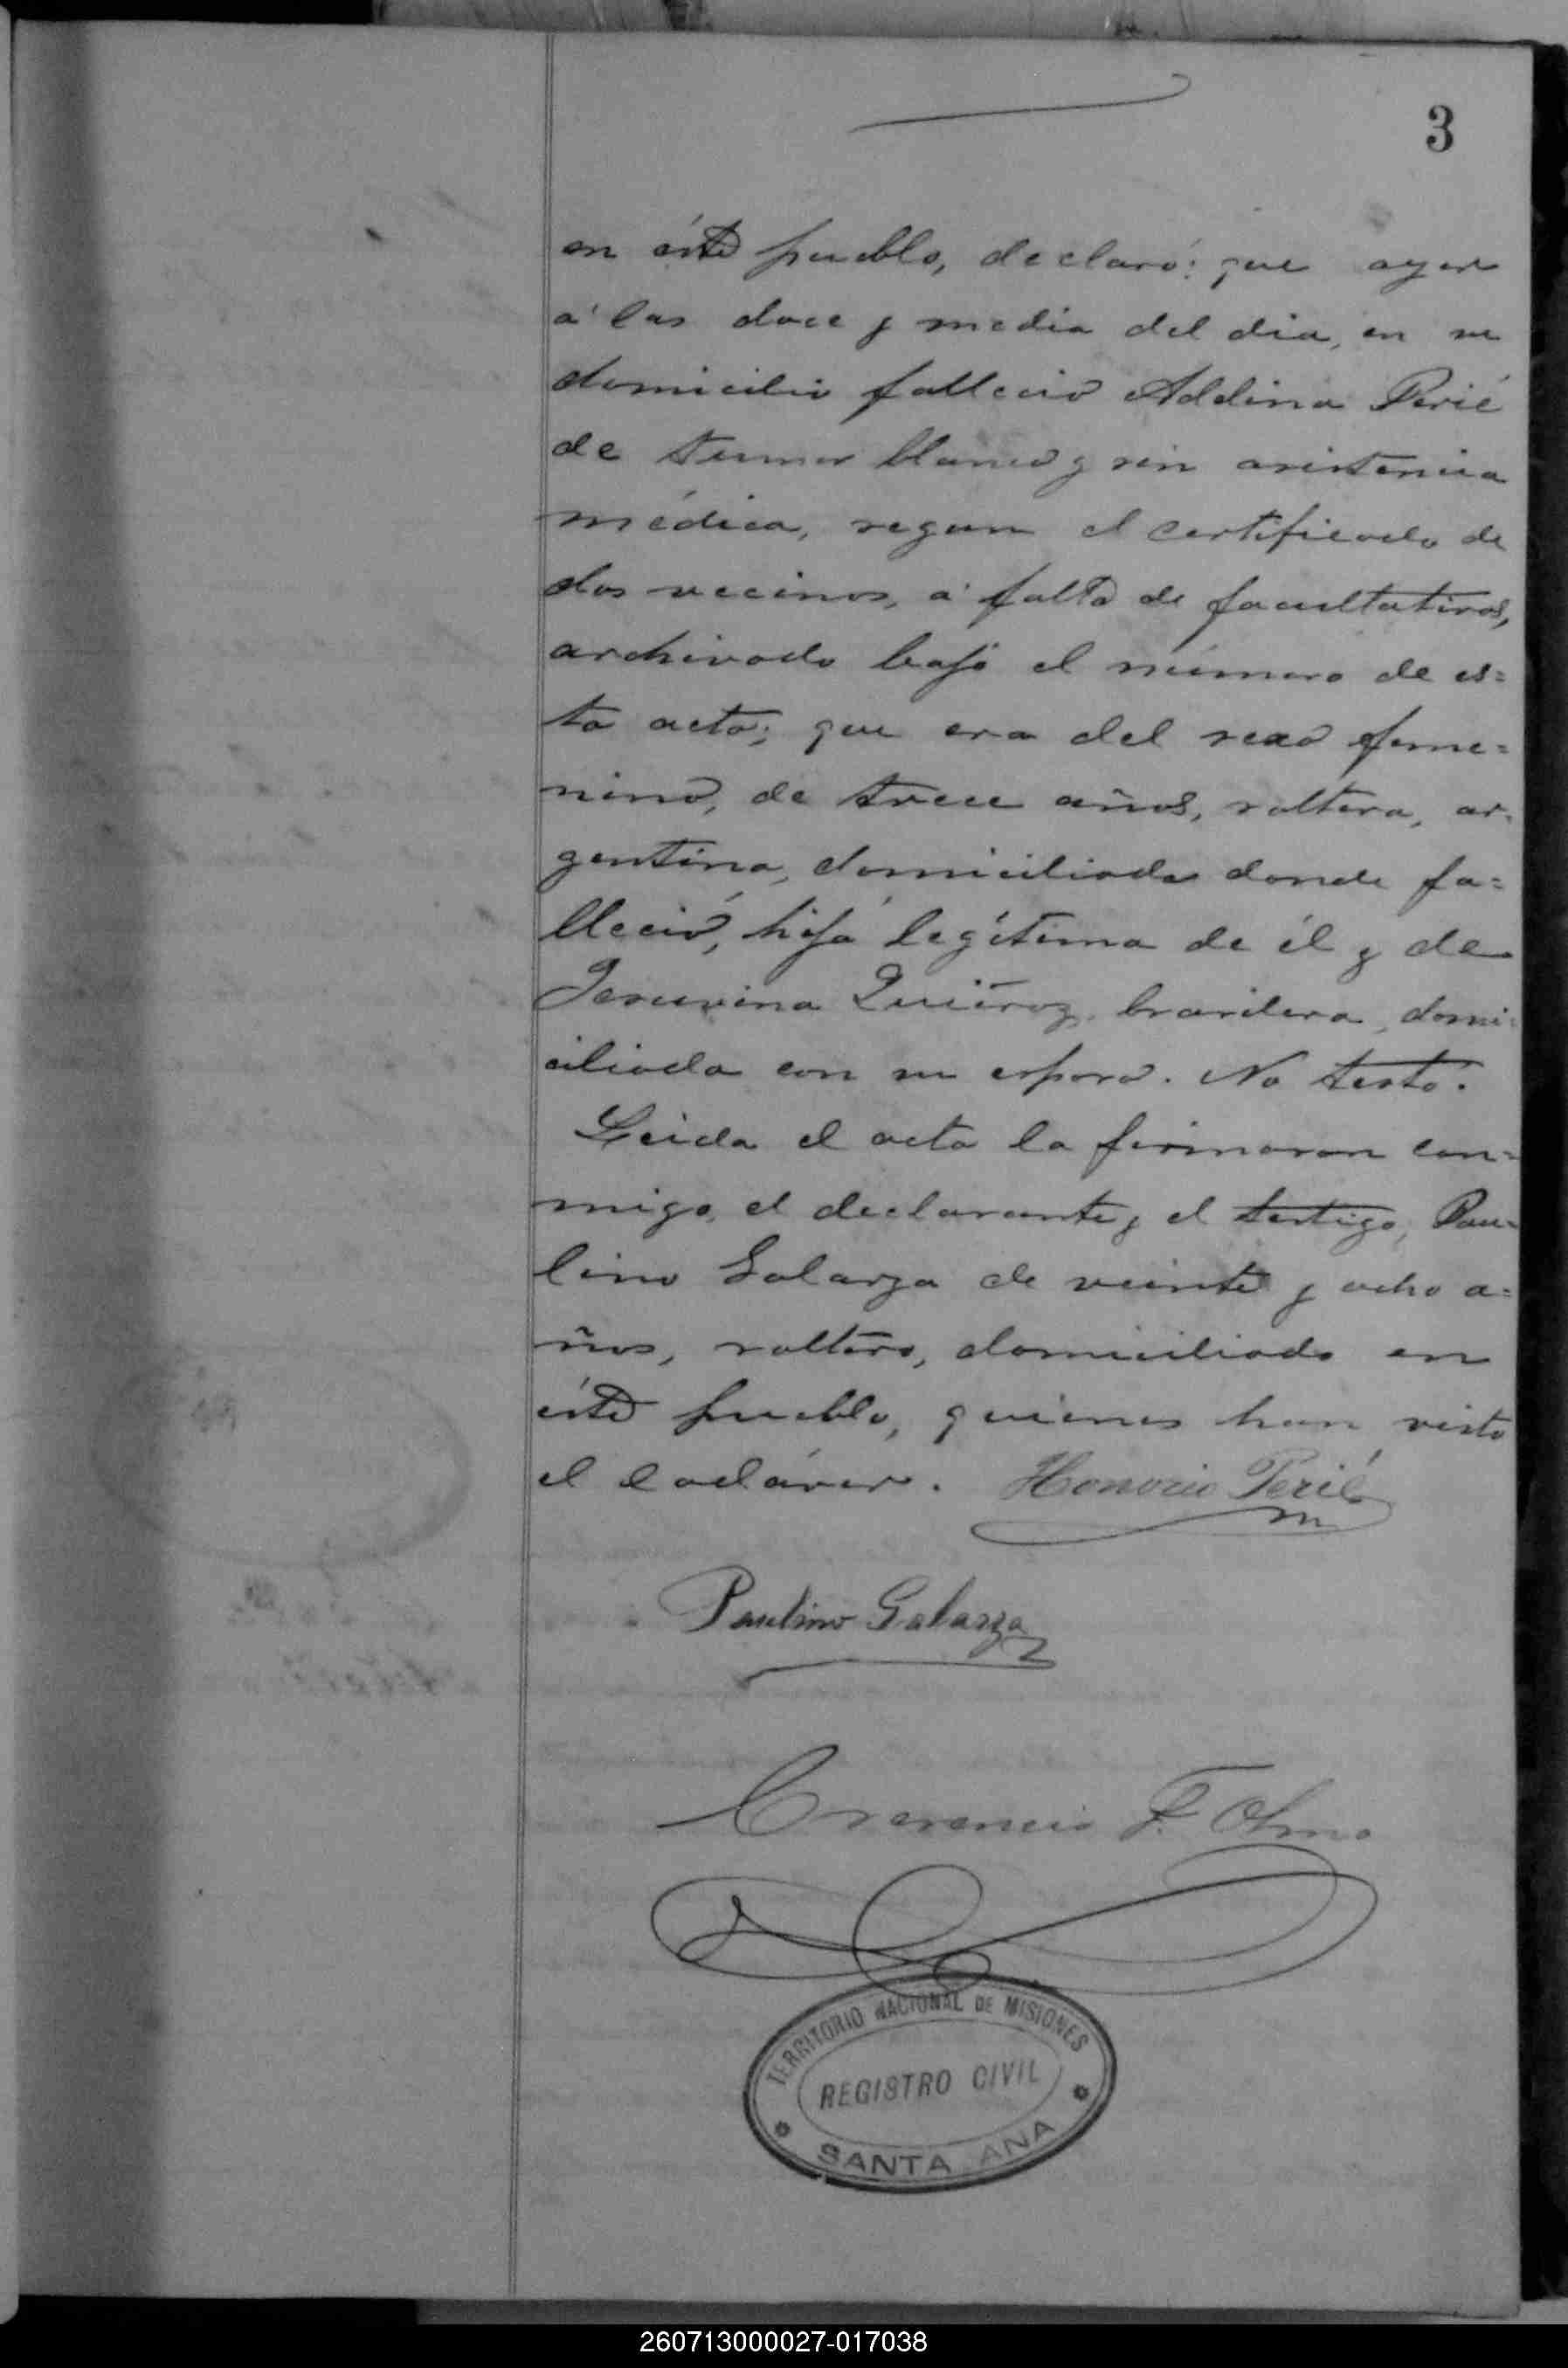 3
en éste pueblo, declaró: que ayer
á las doce y media del dia, en su
domicilio falleció Addina Perié
de tumor blanco y sin asistencia
médica, segun el certificado de
dos vecinos, á falta de facultativos,
archivado bajo el número de es=
ta acta; que era del sexo feme=
nino, de trece años, soltera, ar=
gentina, domiciliada donde fa=
lleció, hija legítima de él y de
Jesuvina Quiéroz, brasilera, domi=
ciliada con su esposo. No testó.
Leida el acta la firmaron con=
migo, el declarante y el testigo, Pau=
lino Galarza de veinte y ocho a=
ños, soltero, domiciliado en
éste pueblo, quienes han visto
el cadáver. Honorio Perié
Paulino Galarza
Crecencio F. Olmo
TERRITORIO NACIONAL DE MISIONES
REGISTRO CIVIL
SANTA ANA
260713000027-017038